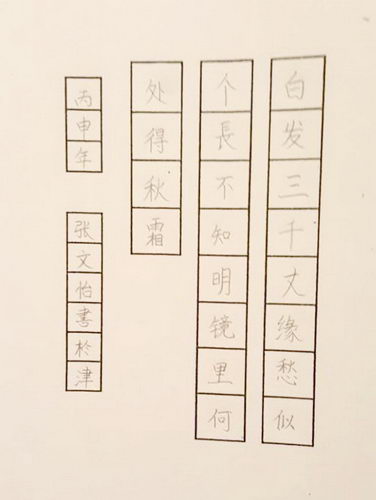 白发三千丈缘愁似
个長不知明镜里何
处得秋霜
丙申年
张文怡書於津